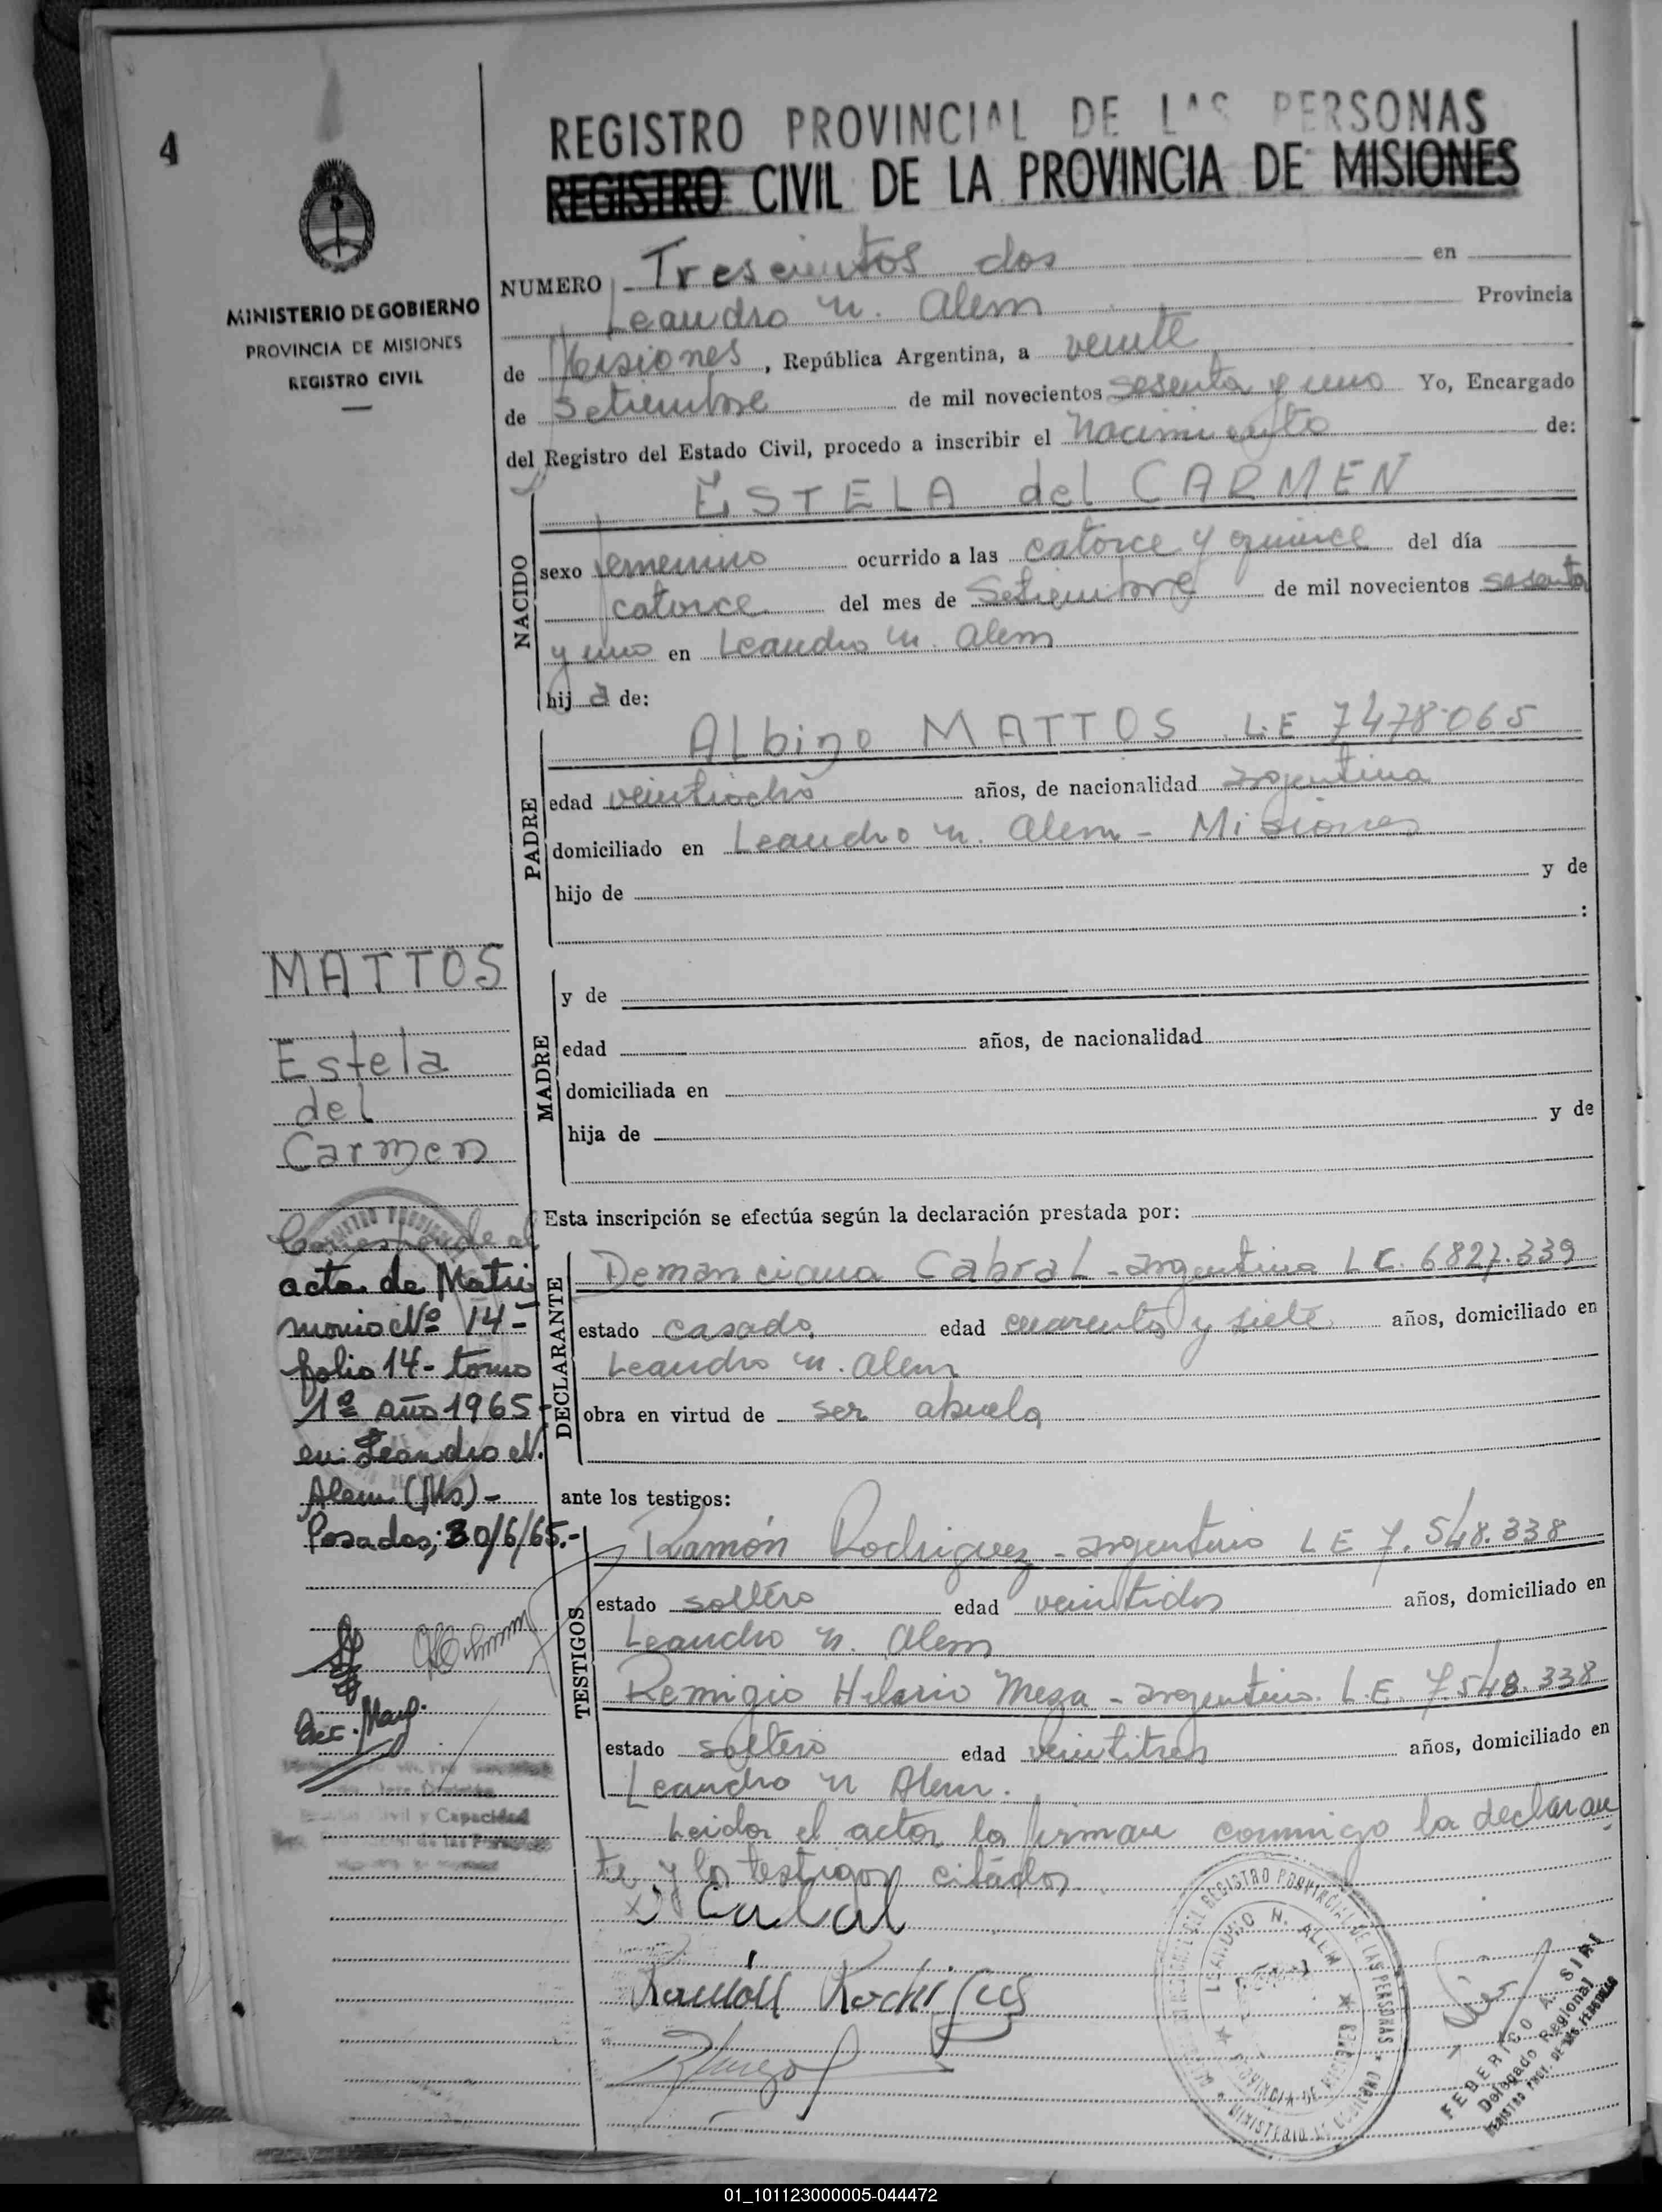 4
REGISTRO PROVINCIAL DE LAS PERSONAS
REGISTRO CIVIL DE LA PROVINCIA DE MISIONES
MINISTERIO DE GOBIERNO
PROVINCIA DE MISIONES
REGISTRO CIVIL
NUMERO Trescientos dos en
Leandro N. Alem Provincia
de Misiones, República Argentina, a veinte
de Setiembre de mil novecientos sesenta y uno Yo, Encargado
del Registro del Estado Civil, procedo a inscribir el Nacimiento de:
NACIDO
ESTELA del CARMEN
sexo femenino ocurrido a las catorce y quince del día
catorce del mes de Setiembre de mil novecientos sesenta
y uno en Leandro N. Alem
hija de:
PADRE
Albino MATTOS L.E 7478065
edad veintiocho años, de nacionalidad argentina
domiciliado en Leandro N. Alem - Misiones
hijo de y de
:
MADRE
y de
edad años, de nacionalidad
domiciliada en
hija de y de
MATTOS
Estela
del
Carmen
Corresponde al
acta de Matri
monio Nº 14-
folio 14- tomo
1º año 1965-
en: Leandro N.
Alem (Ms)-
Posadas; 30/6/65.-
Enc. Marg.
Civil y Capacidad
Esta inscripción se efectúa según la declaración prestada por:
DECLARANTE
Demanciana Cabral - argentina L C. 6827.339
estado casada edad cuarenta y siete años, domiciliado en
Leandro N. Alem
obra en virtud de ser abuela
ante los testigos:
TESTIGOS
Ramón Rodriguez - argentino L E 7.548.338
estado soltero edad veintidos años, domiciliado en
Leandro N. Alem
Remigio Hilario Meza - argentino. L.E. 7.548.338
estado soltero edad veintitres años, domiciliado en
Leandro N Alem.
Leida el acta la firman conmigo la declaran
te y los testigos citados.
Cabral
Ramón Rodriguez
REGISTRO PROVINCIAL DE LAS PERSONAS
LEANDRO N. ALEM
PROVINCIA DE MISIONES
MINISTERIO DE GOBIERNO
FEDERICO A. SIRI
Delegado Regional
REGISTRO PROV. DE LAS PERSONAS
01_101123000005-044472